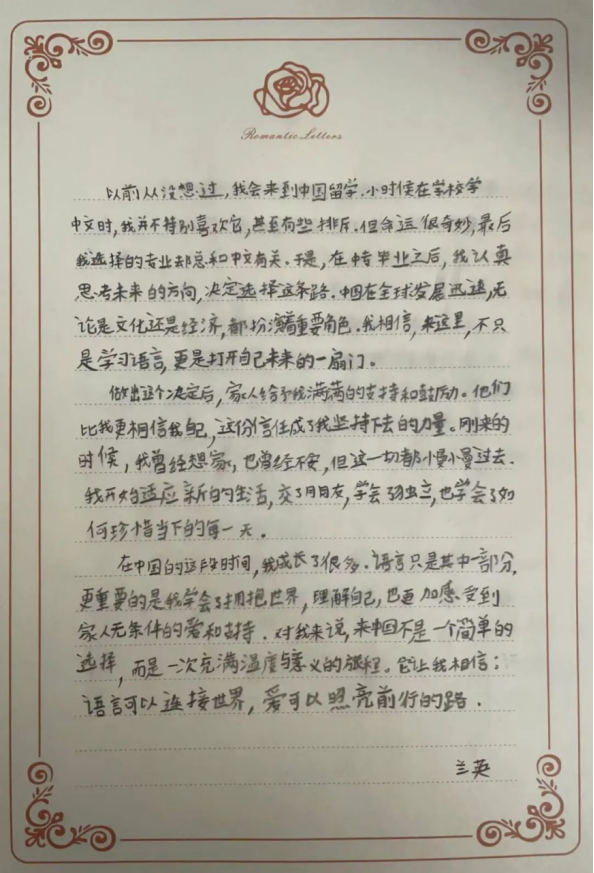 Romantic Letters
以前从没想过,我会来到中国留学.小时候在学校学
中文时,我并不特别喜欢它,甚至有些排斥.但命运很奇妙,最后
我选择的专业却总和中文有关.于是,在中专毕业之后,我认真
思考未来的方向,决定选择这条路.中国在全球发展迅速,无
论是文化还是经济,都扮演着重要角色.我相信,来这里,不只
是学习语言,更是打开自己未来的一扇门。
做出这个决定后,家人给予我满满的支持和鼓励。他们
比我更相信我自己,这份信任成了我坚持下去的力量。刚来的
时候,我曾经想家,也曾经不安,但这一切都慢慢过去.
我开始适应新的生活,交了朋友,学会了独立,也学会了如
何珍惜当下的每一天。
在中国的这段时间,我成长了很多.语言只是其中一部分,
更重要的是我学会了拥抱世界,理解自己,也更加感受到
家人无条件的爱和支持.对我来说,来中国不是一个简单的
选择,而是一次充满温度与意义的旅程。它让我相信:
语言可以连接世界,爱可以照亮前行的路.
兰英